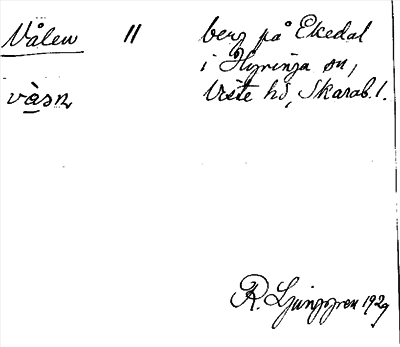 Vålen " berg på Ekedal
i Hyringa sn,
vàsn Viste hd, Skarab. l.
R. Ljunggren 1929